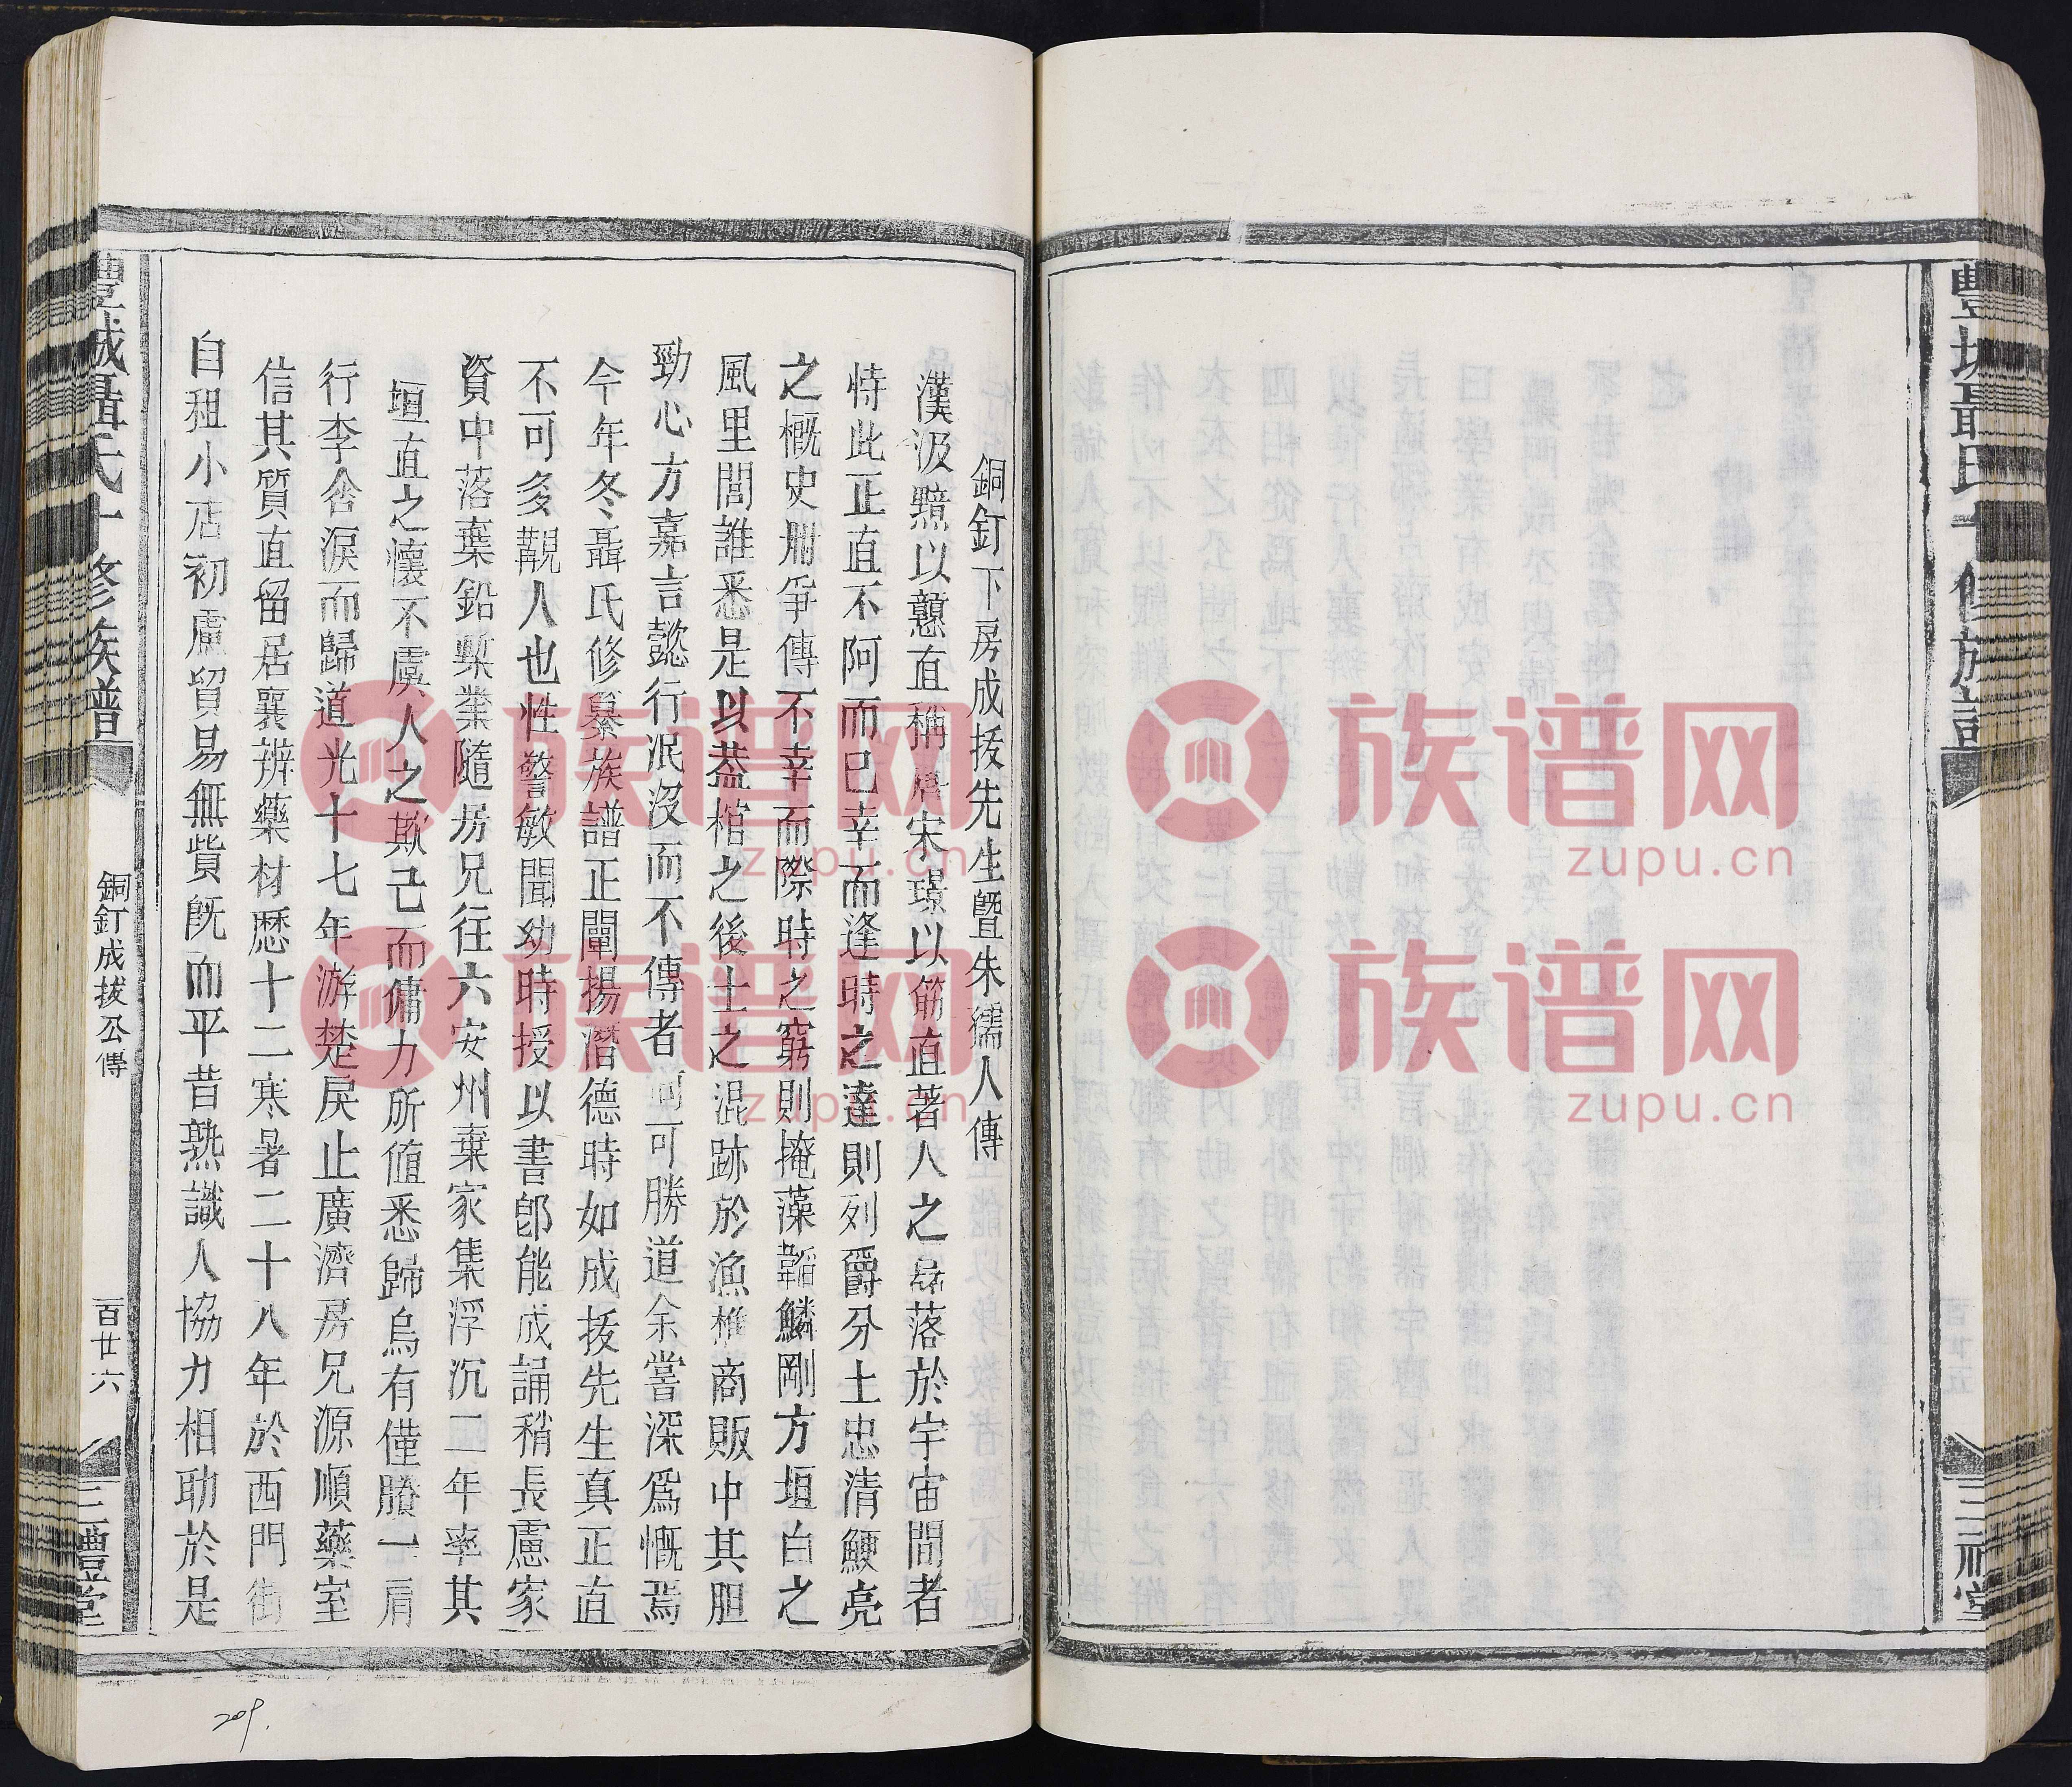 豐城聶氏十修族譜
百廿五
三禮堂
銅釘下房成拔先生暨朱孺人傳
漢汲黯以戇直稱唐宋璟以筋直著人之磊落於宇宙間者
恃此正直不阿而已幸而逢時之達則列爵分土忠清鯁亮
之概史册爭傳不幸而際時之窮則掩藻韜鱗剛方垣白之
風里閭誰悉是以葢棺之後士之混跡於漁樵商販中其胆
勁心方嘉言懿行泯沒而不傳者何可勝道余嘗深爲慨焉
今年冬聶氏修纂族譜正闡揚潛德時如成拔先生真正直
不可多觀人也性警敏聞幼時授以書卽能成誦稍長慮家
資中落葉鉛槧業隨房兄往六安州棄家集浮沉二年率其
垣直之懷不虞人之欺己而傭力所值悉歸烏有僅賸一肩
行李含淚而歸道光十七年游楚戾止廣濟房兄源順藥室
信其質直留居襄辨藥材歷十二寒暑二十八年於西門街
自租小店初慮貿易無貲旣而平昔熟識人協力相助於是
豐城聶氏十修族譜
銅釘成拔公傳
一百廿六
三禮堂
209.
族谱网
zupu.cn
族谱网
zupu.cn
族谱网
zupu.cn
族谱网
zupu.cn